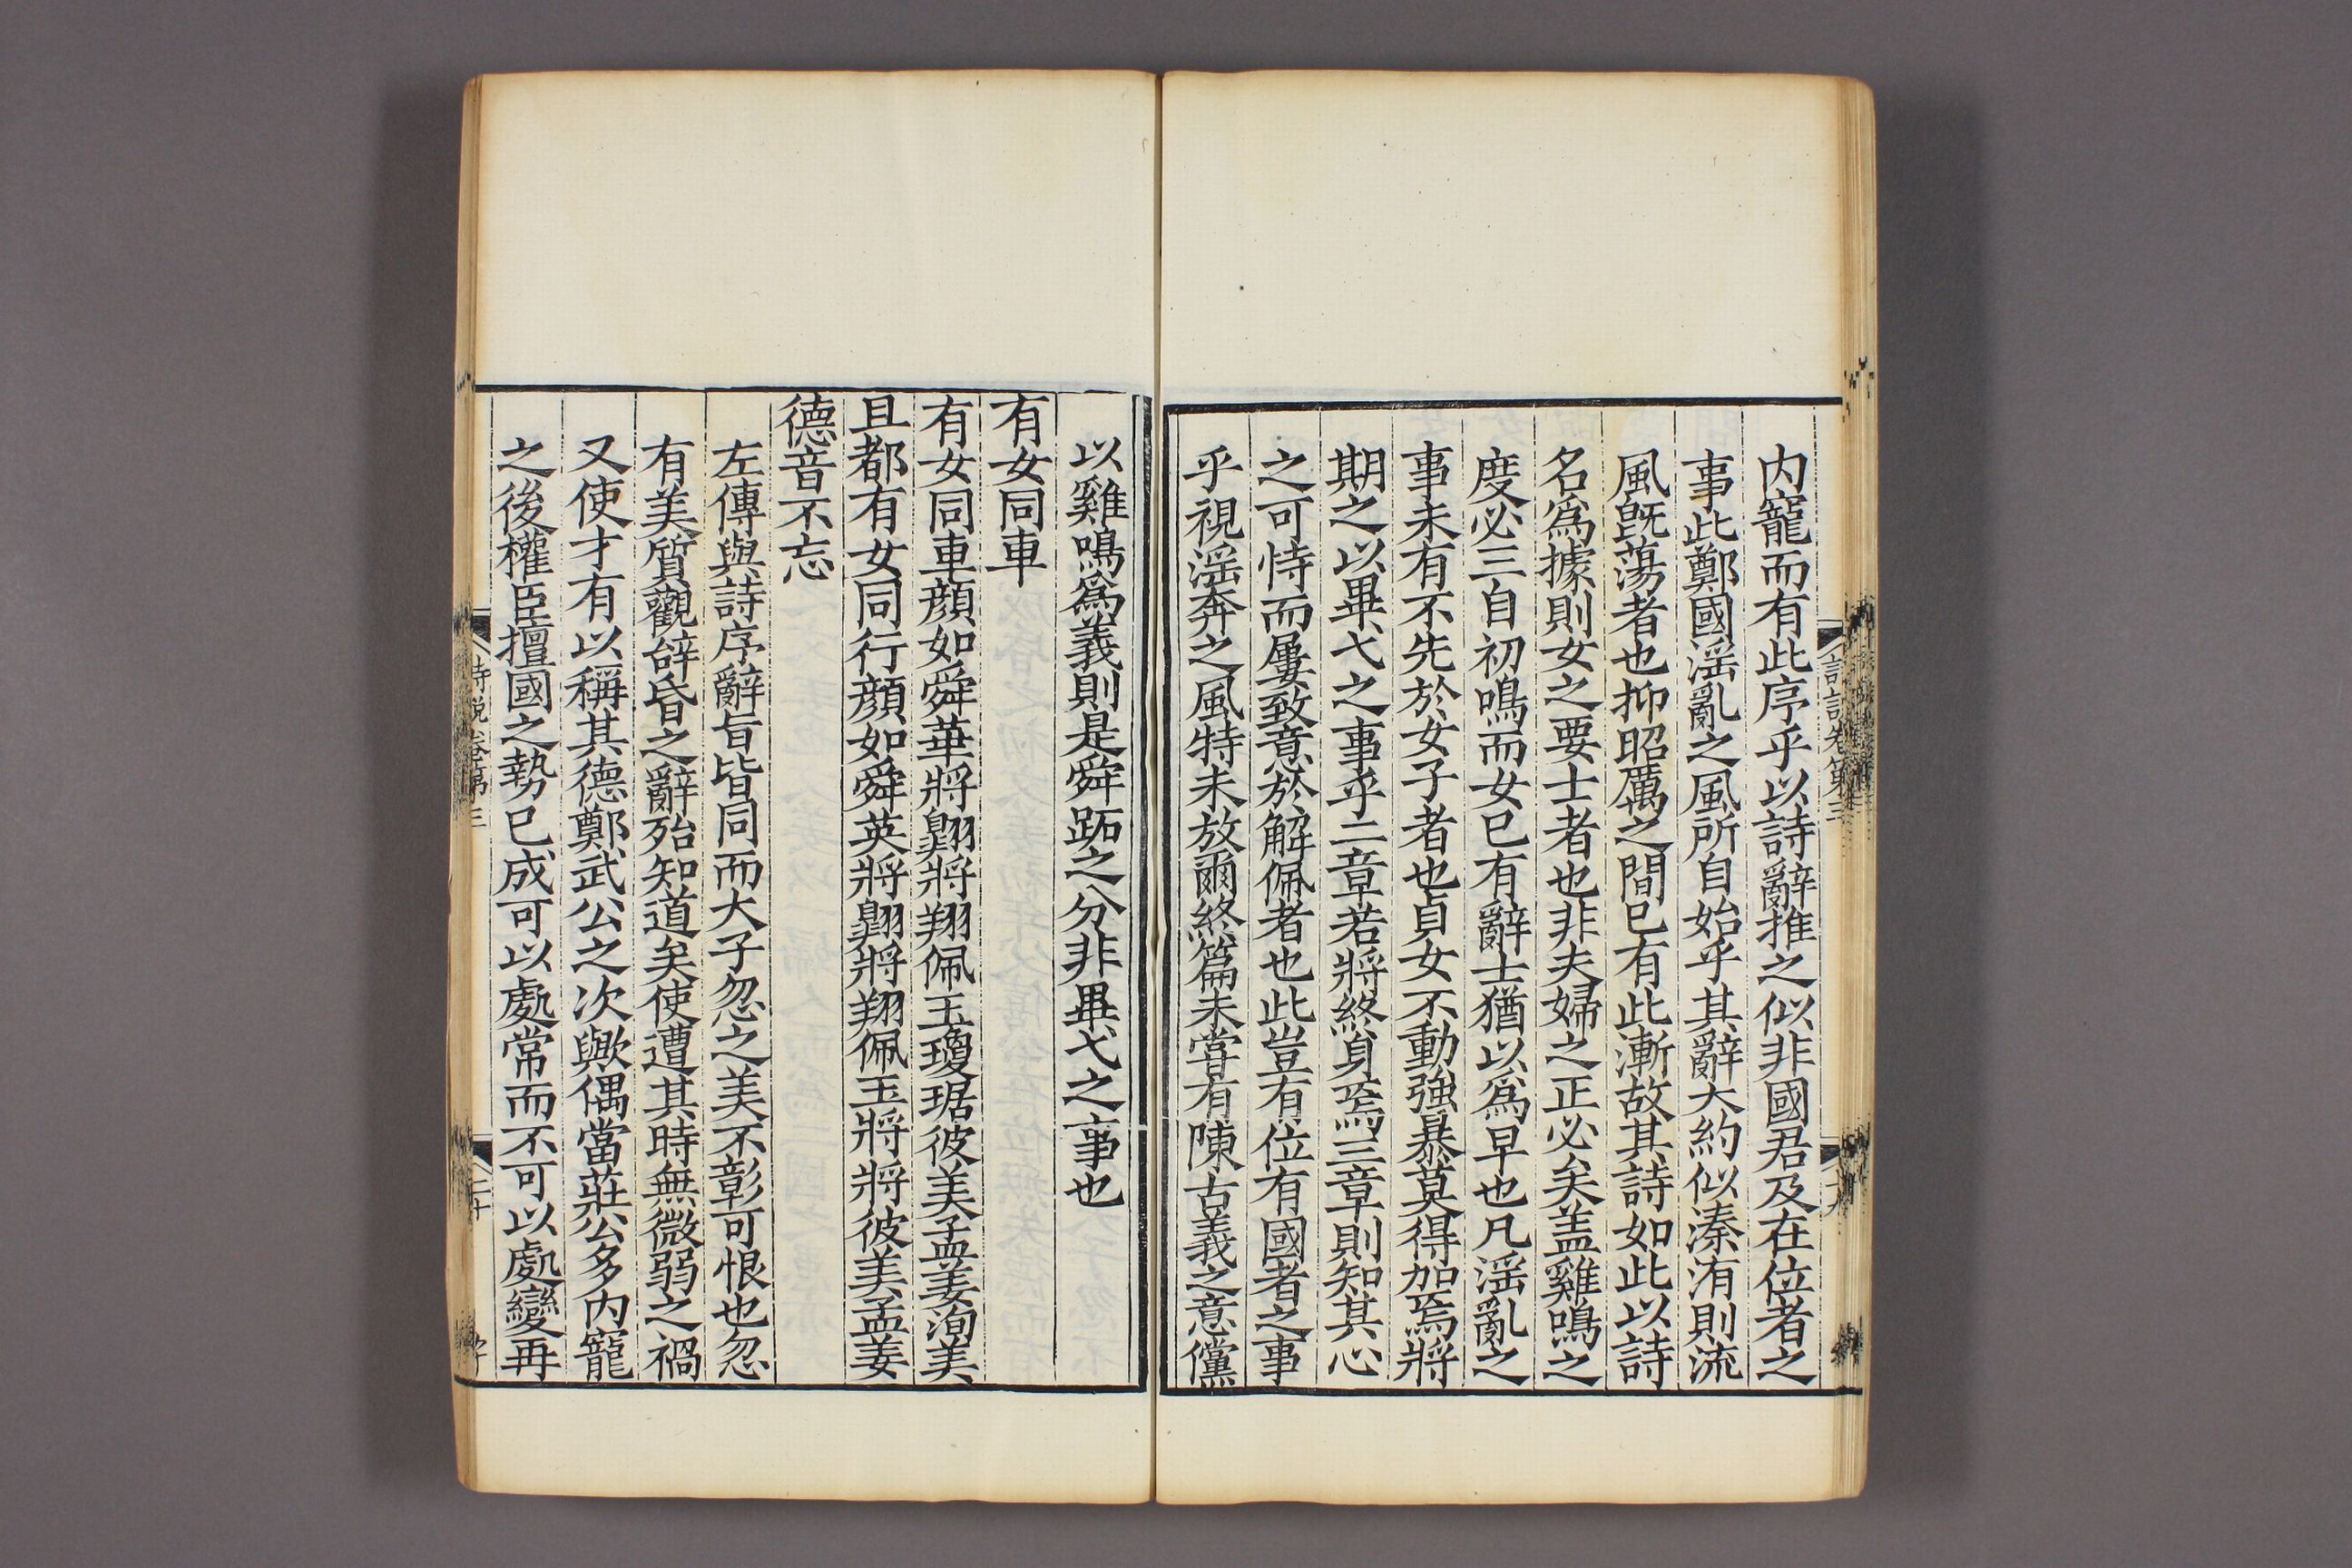 内寵而有此序乎以詩辭推之似非國君及在位者之
事此鄭國淫亂之風所自始乎其辭大約似溱洧則流
風旣蕩者也抑昭厲之間已有此漸故其詩如此以詩
名爲據則女之要士者也非夫婦之正必矣盖雞鳴之
度必三自初鳴而女已有辭士猶以爲早也凡淫亂之
事未有不先於女子者也貞女不動強暴莫得加焉將
期之以畢弋之事乎二章若將終身焉三章則知其心
之可恃而屢致意於解佩者也此豈有位有國者之事
乎視淫奔之風特未放爾終篇未嘗有陳古義之意儻
以雞鳴爲義則是舜跖之分非畢弋之事也
有女同車
有女同車顔如舜華將翺將翔佩玉瓊琚彼美孟姜洵美
且都有女同行顔如舜英將翺將翔佩玉將將彼美孟姜
德音不忘
左傳與詩序辭旨皆同而大子忽之美不彰可恨也忽
有美質觀辝昏之辭殆知道矣使遭其時無微弱之禍
又使才有以稱其德鄭武公之次歟偶當莊公多内寵
之後權臣擅國之勢已成可以處常而不可以處變再
詩説卷第三
二十